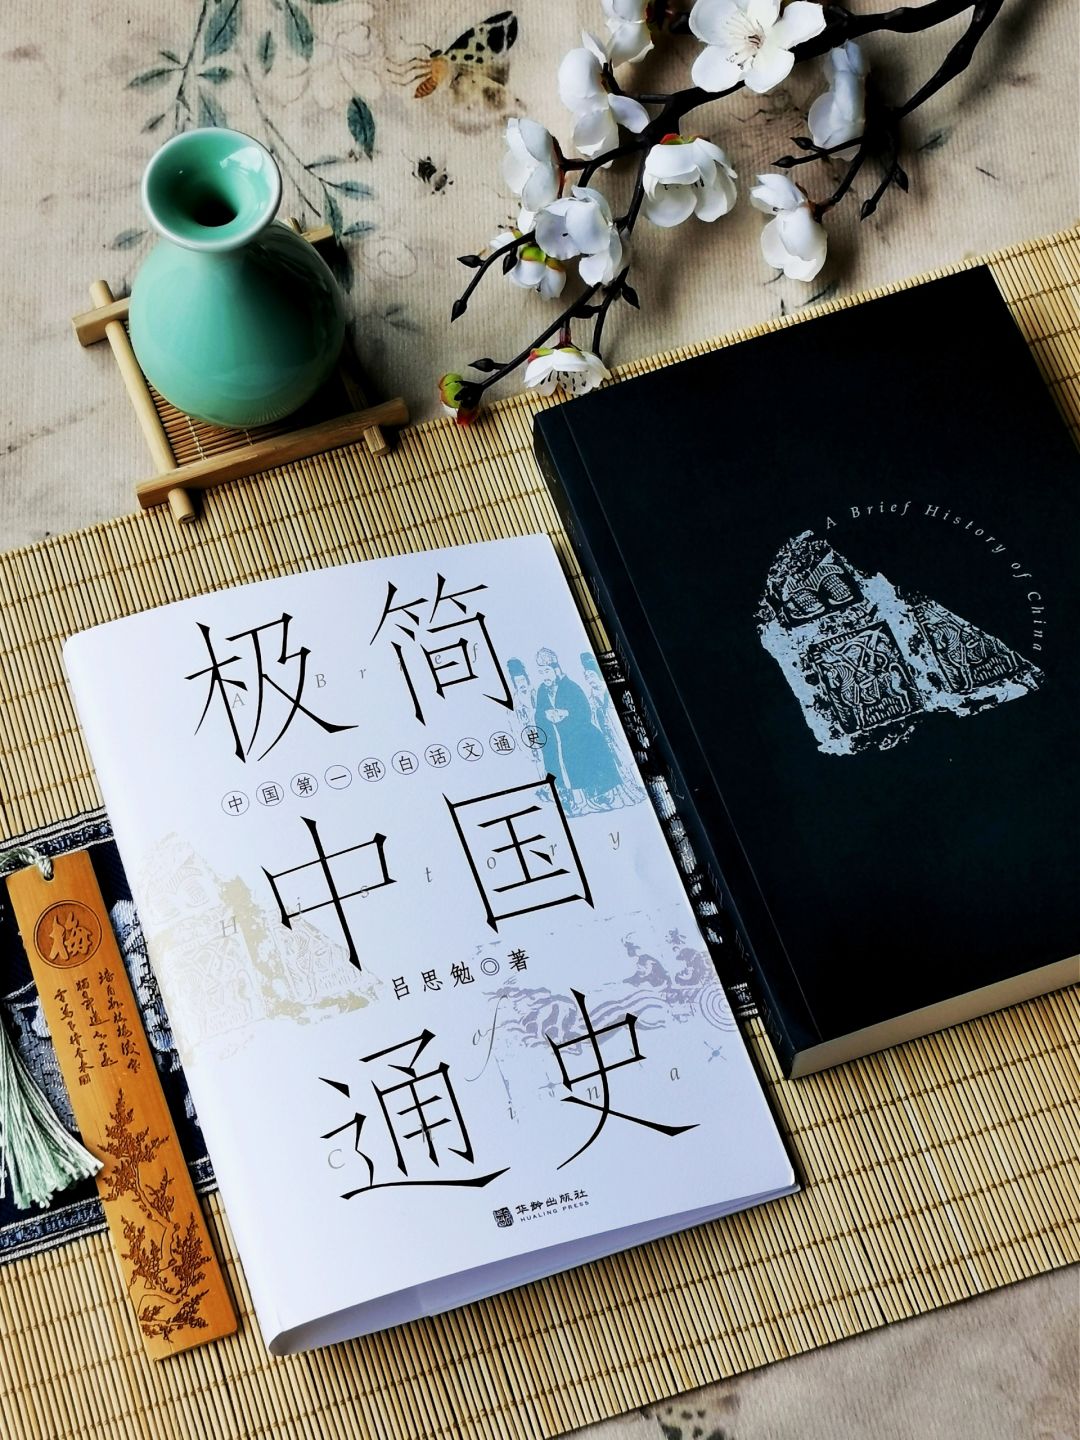 极简
A Brief
中国第一部白话文通史
中国
History
吕思勉◎著
of
通史
China
华龄出版社
HUALING PRESS
A Brief History of China
梅